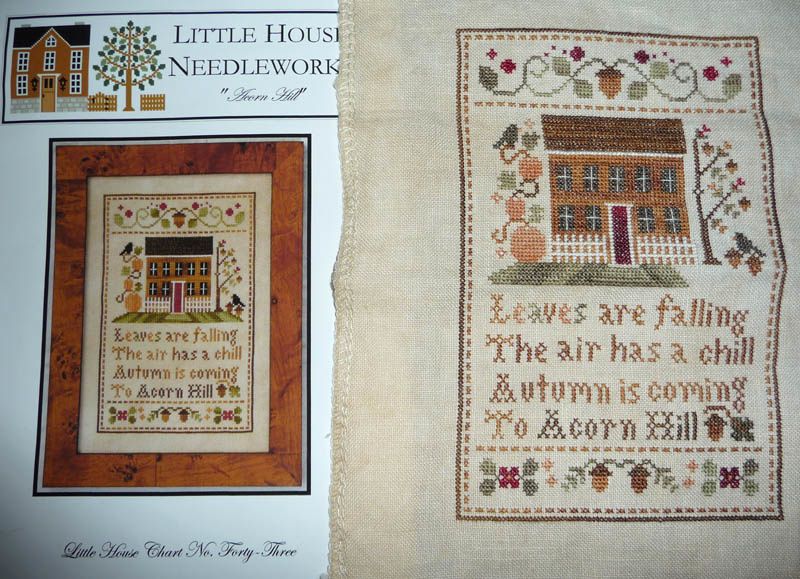 LITTLE HOUSE
NEEDLEWORK
"Acorn Hill"
Leaves are falling
The air has a chill
Autumn is coming
To Acorn Hill
Little House Chart No. Forty-Three
Leaves are falling
The air has a chill
Autumn is coming
To Acorn Hill